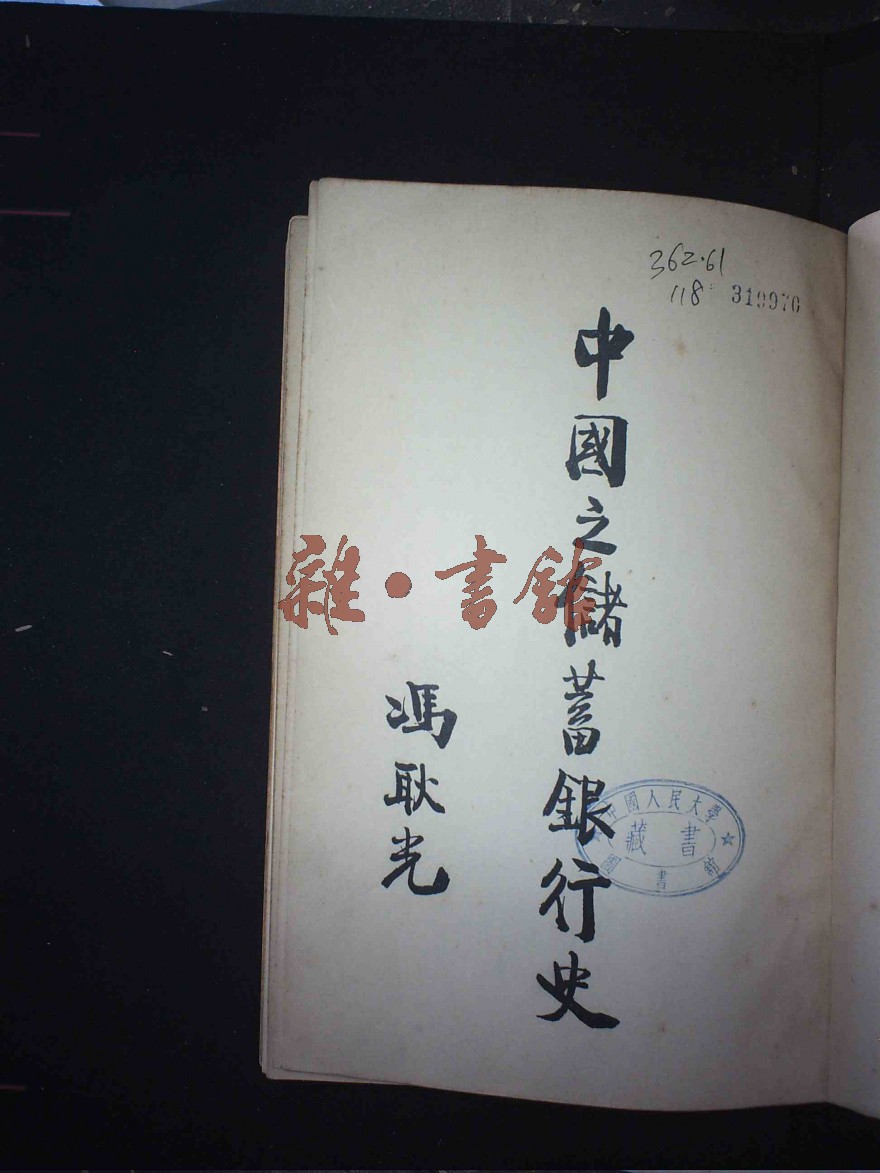 362.61
118 319976
中國之儲蓄銀行史
馮耿光
雜·書館
中國人民大學
藏書
圖書館